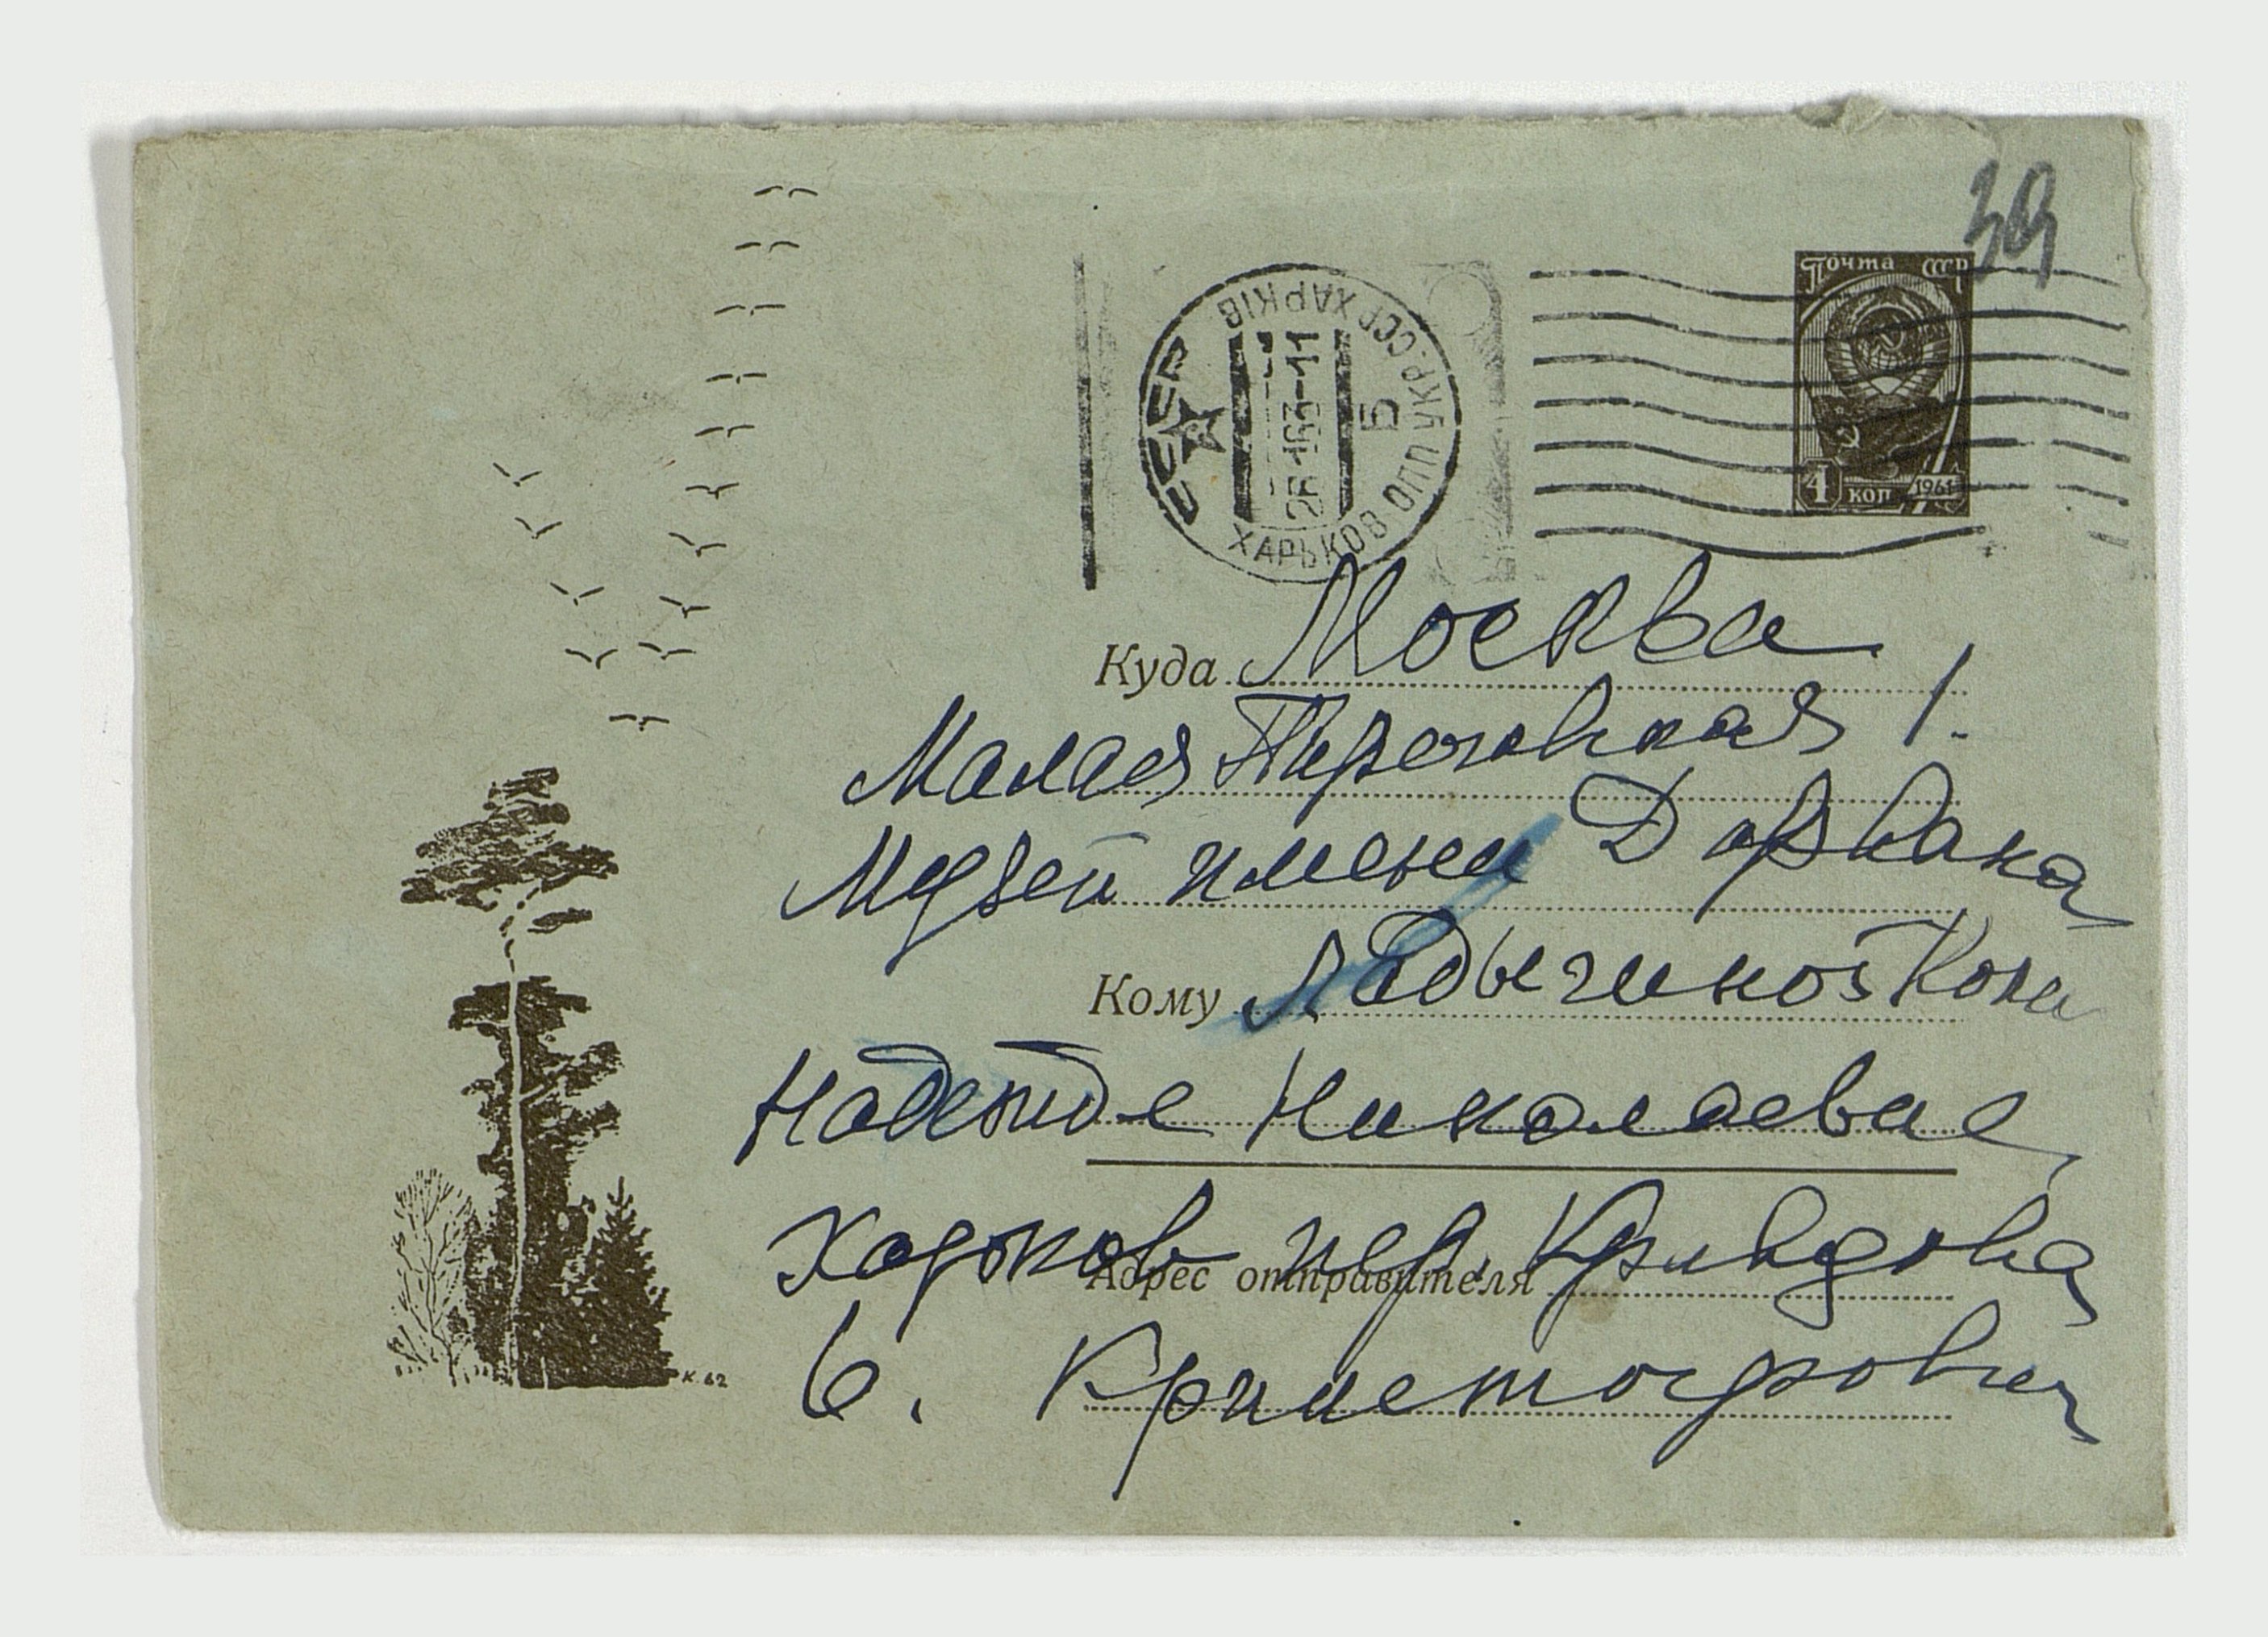 39
Почта СССР
4 коп 1961
СССР
ХАРЬКОВ ОПП УКР.ССР ХАРКІВ
163-11
Б
Куда Москва
Малая Пироговская 1.
Музей имени Дарвина
Кому Ладыгиной Котс
Надежде Николаевне
Харьков пер. Кравцова
Адрес отправителя
6. Христофорович
К. 62